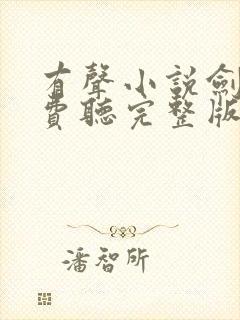 有聲小説劍
費聽完整版
潘智所